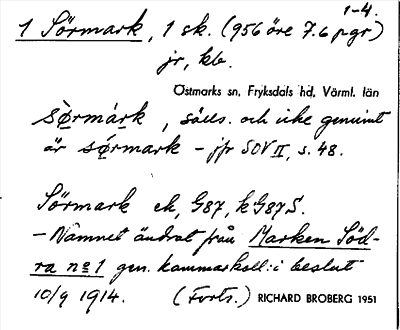 1-4.
1 Sörmark, 1 sk. (956 öre 7.6 pgr)
jr, kb.
Östmarks sn, Fryksdals hd, Värml. län
sø̀rmárk, sålls. och icke genuint
är sǿrmark - jfr SOV II, s. 48.
Sörmark ek, G87, kG87S.
- Namnet ändrat från Marken Söd-
ra no 1 gen. kammarkoll:i beslut
10/9 1914. (Forts.) RICHARD BROBERG 1951